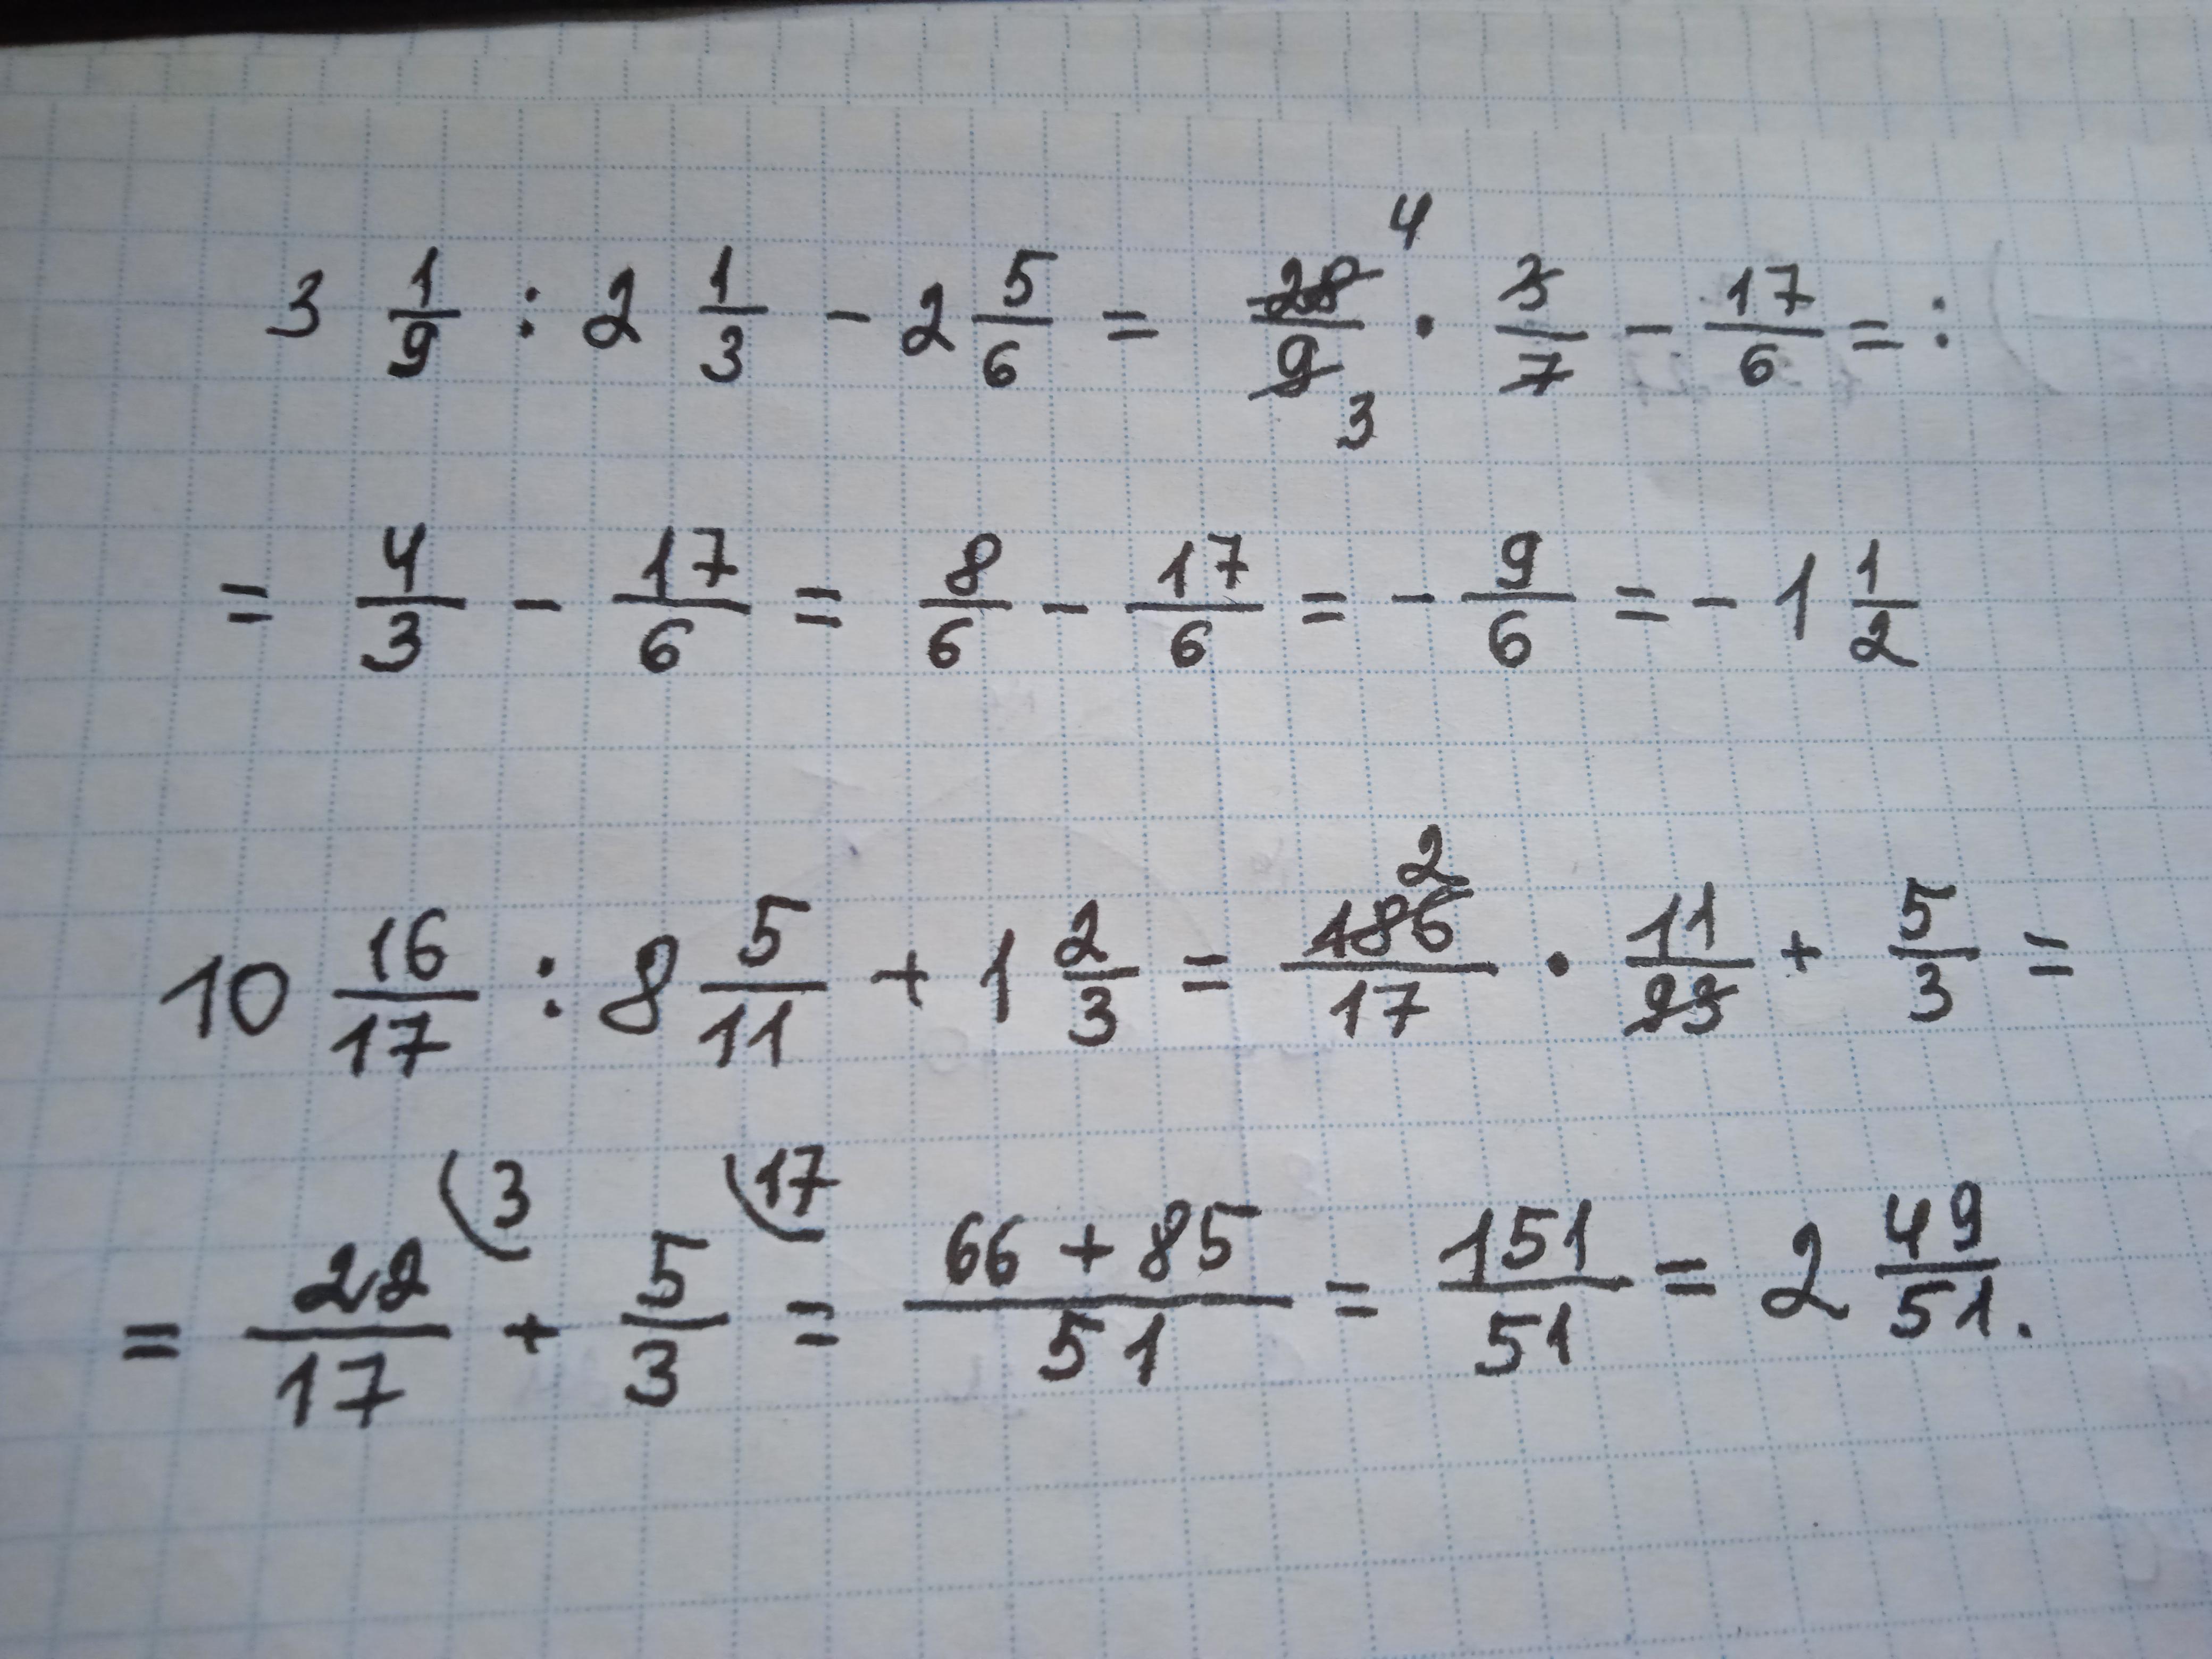 3 1/9 : 2 1/3 - 2 5/6 = 28/9 4 3 · 3/7 - 17/6 = :
= 4/3 - 17/6 = 8/6 - 17/6 = - 9/6 = - 1 1/2
10 16/17 : 8 5/11 + 1 2/3 = 186/17 2 · 11/93 + 5/3 =
= 22/17 (3 + 5/3 (17 = 66 + 85/51 = 151/51 = 2 49/51.